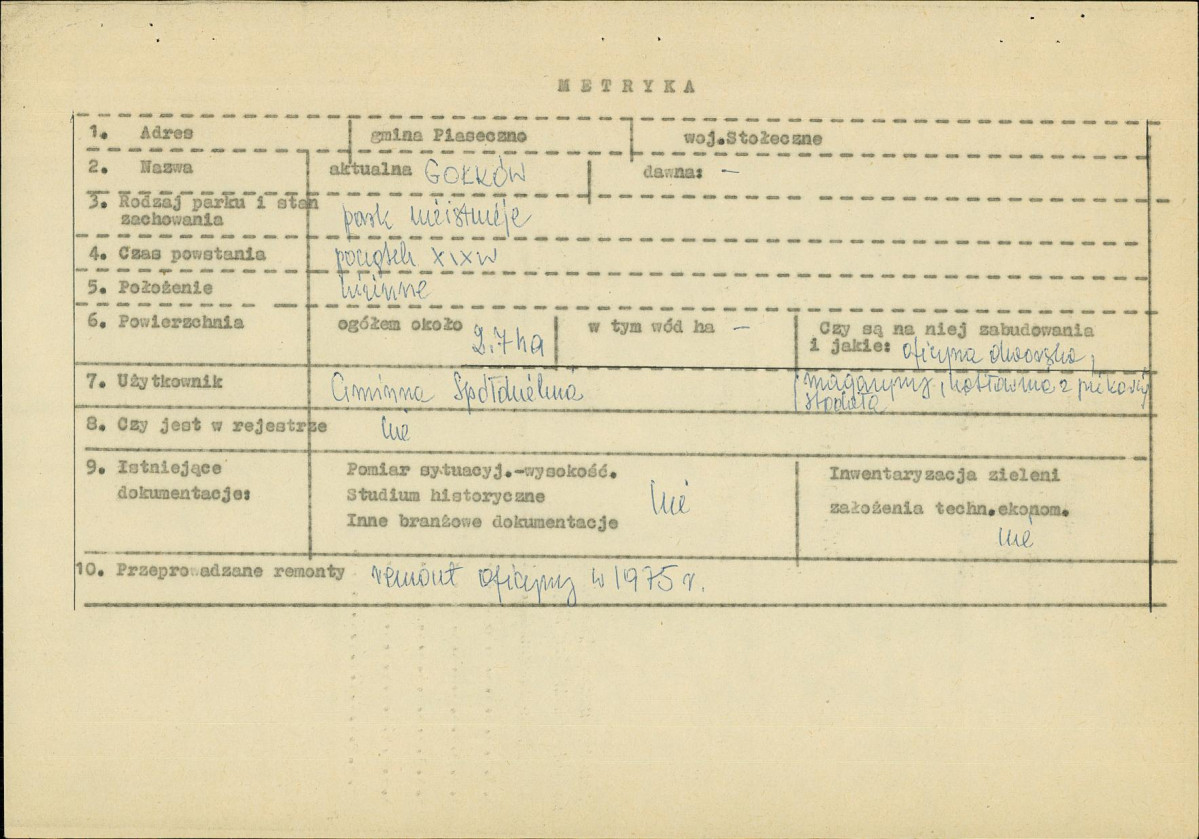 METRYKA
1. Adres gmina Piaseczno woj.Stołeczne
2. Nazwa aktualna GOŁKÓW dawna: –
3. Rodzaj parku i stan
zachowania park nieistnieje
4. Czas powstania początek XIXw
5. Położenie
6. Powierzchnia ogółem około 2.7 ha w tym wód ha – Czy są na niej zabudowania
i jakie: oficyna dworska,
7. Użytkownik Gminna Spółdzielnia magazyny, kotłownia z
stodoła
8. Czy jest w rejestrze nie
9. Istniejące Pomiar sytuacyj.-wysokość. Inwentaryzacja zieleni
dokumentacje: Studium historyczne nie założenia techn.ekonom.
Inne branżowe dokumentacje nie
10. Przeprowadzane remonty remont oficyny w 1975 r.